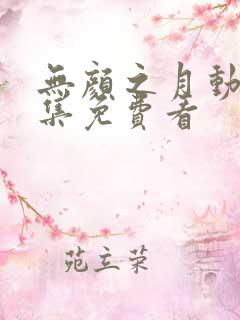 無顏之月動
集免費看
苑立荣